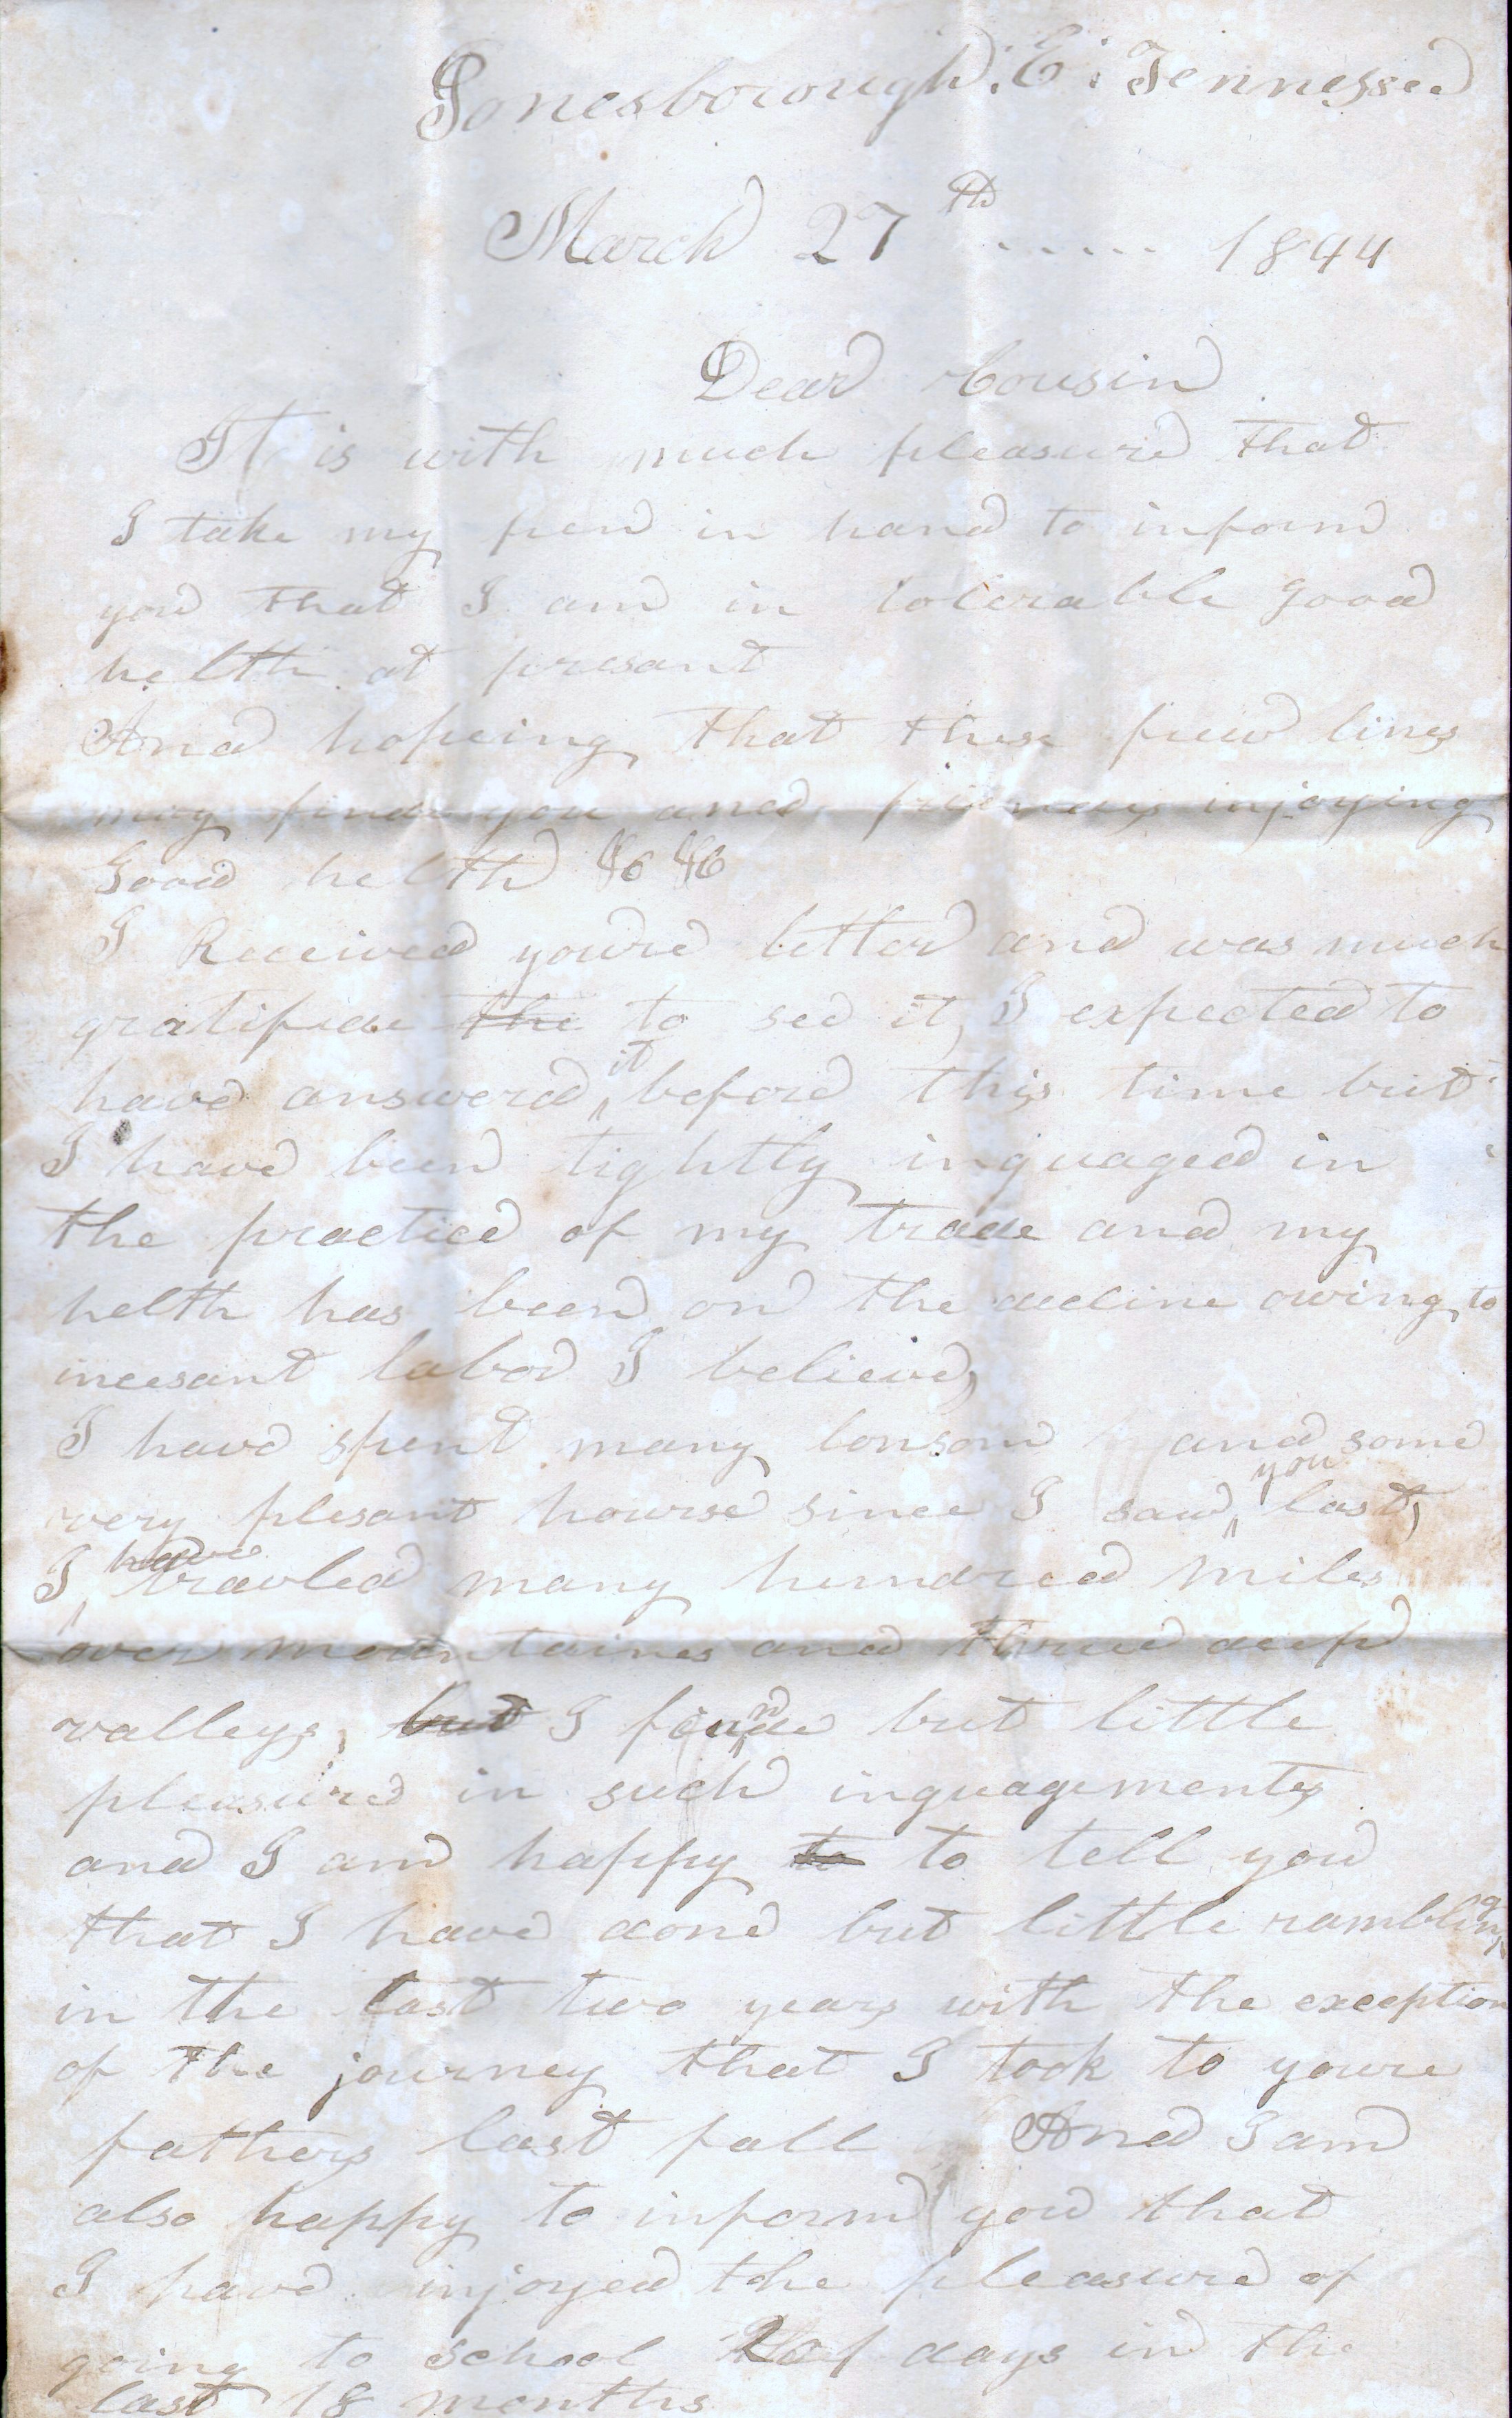 Jonesborough. E. Tennessee
March 27th ..... 1844
Dear Cousin
It is with much pleasure that
I take my pen in hand to inform
you that I am in tolerable good
helth at presant
And hopeing that these few lines
may find you and friends injoying
Good helth &c &c
I Received youre letter and was much
gratifide the to see it, I expected to
have answered it before this time but
I have been tightly inguaged in
the practice of my trade and my
helth has been on the decline owing to
incesant labor I believe,
I have spent many lonsom and some
very plesant hourse since I saw you last,
I have travled many hundred miles
over mountaines and thrue deep
valleys, but I finde but little
pleasure in such inguagements
and I am happy to to tell you
that I have done but little rambling
in the last two years with the exception
of the journey that I took to youre
fathers last fall And I am
also happy to inform you that
I have injoyed the pleasure of
going to school days in the
last 18 months